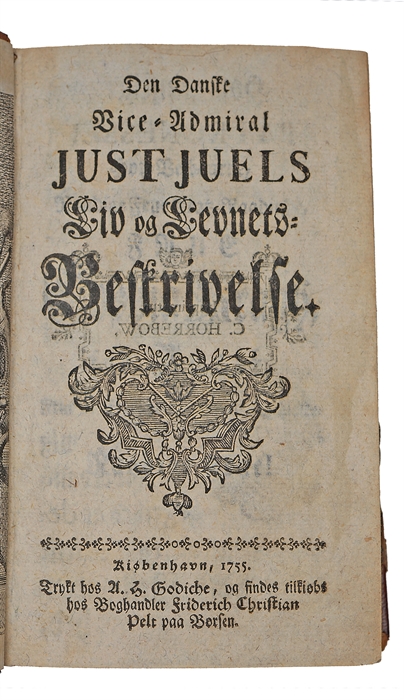 Den Danske
Vice-Admiral
JUST JUELS
Liv og Levnets-
Beskrivelse.
C. HORREBOW.
Kiøbenhavn, 1755.
Trykt hos A. H. Godiche, og findes tilkiøbs
hos Boghandler Friderich Christian
Pelt paa Børsen.